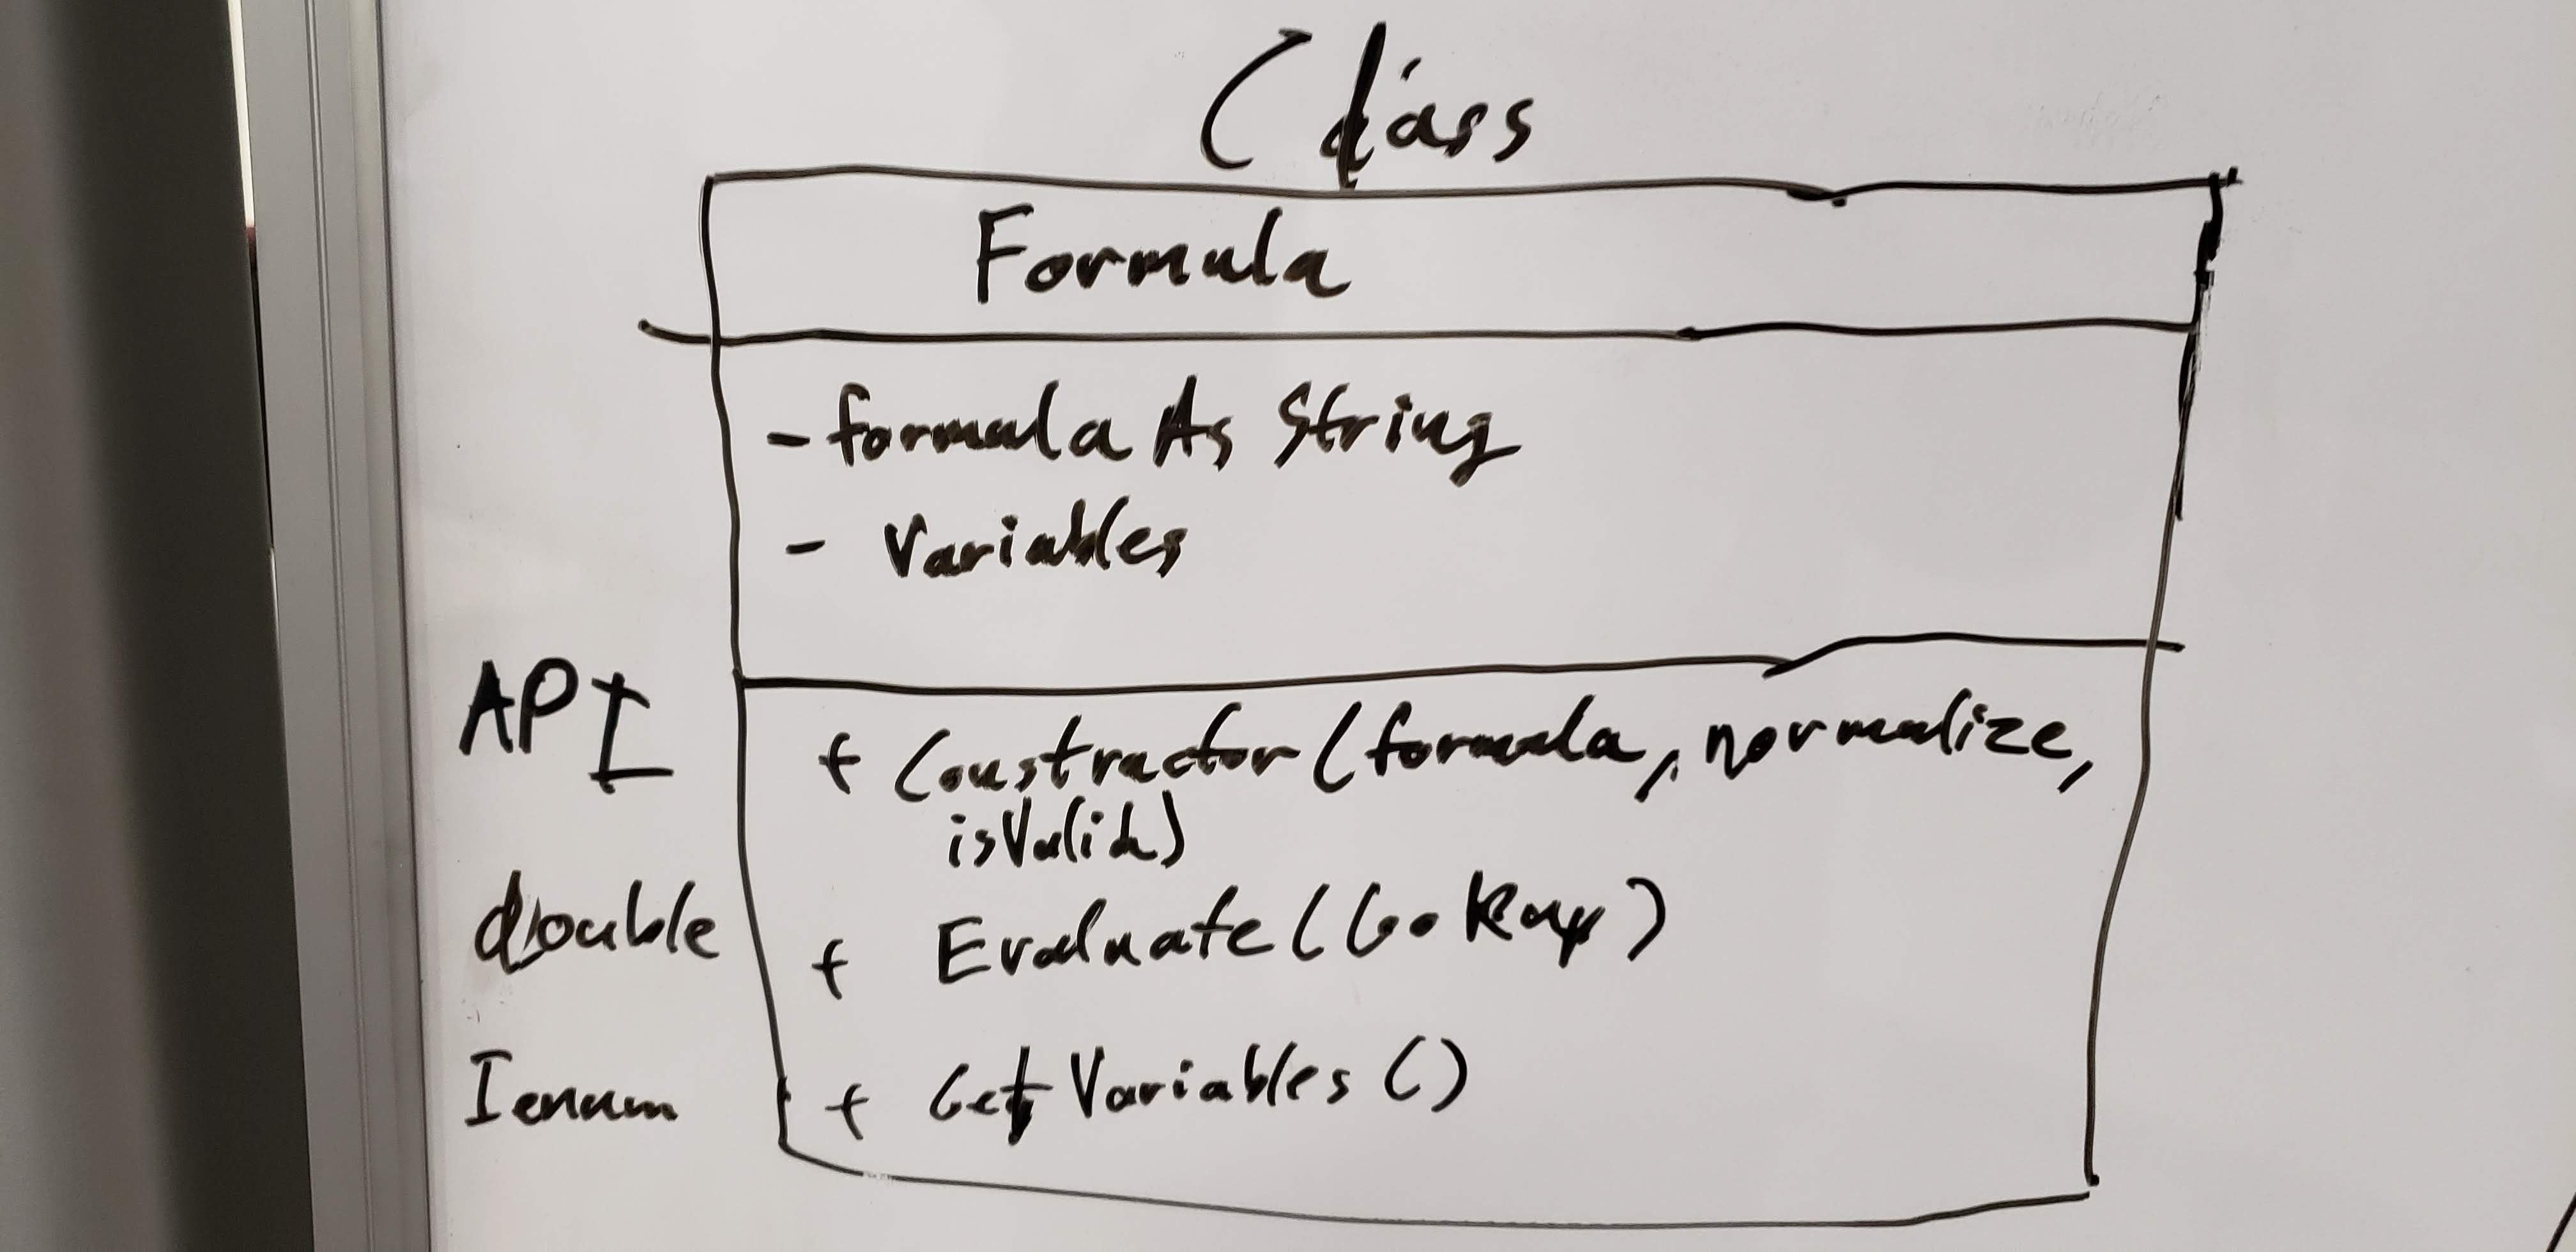 Class
Formula
- formula As String
- Variables
API
+ Constructor (formula, normalize,
isValid)
double + Evaluate (Lookup)
Ienum + Get Variables ()